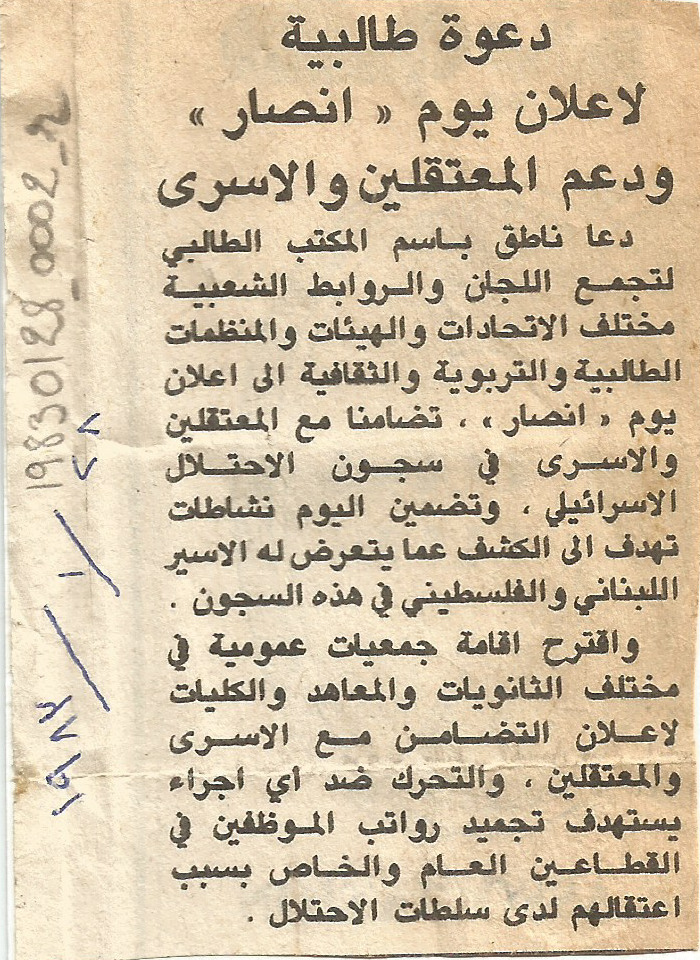 دعوة طالبية
لاعلان يوم « انصار »
ودعم المعتقلين والاسرى
دعا ناطق باسم المكتب الطالبي
لتجمع اللجان والروابط الشعبية
مختلف الاتحادات والهيئات والمنظمات
الطالبية والتربوية والثقافية الى اعلان
يوم « انصار » ، تضامنا مع المعتقلين
والاسرى في سجون الاحتلال
الاسرائيلي ، وتضمين اليوم نشاطات
تهدف الى الكشف عما يتعرض له الاسير
اللبناني والفلسطيني في هذه السجون .
واقترح اقامة جمعيات عمومية في
مختلف الثانويات والمعاهد والكليات
لاعلان التضامن مع الاسرى
والمعتقلين ، والتحرك ضد أي اجراء
يستهدف تجميد رواتب الموظفين في
القطاعين العام والخاص بسبب
اعتقالهم لدى سلطات الاحتلال .
19830128_0002_2
٢٨ / ١ / ١٩٨٣